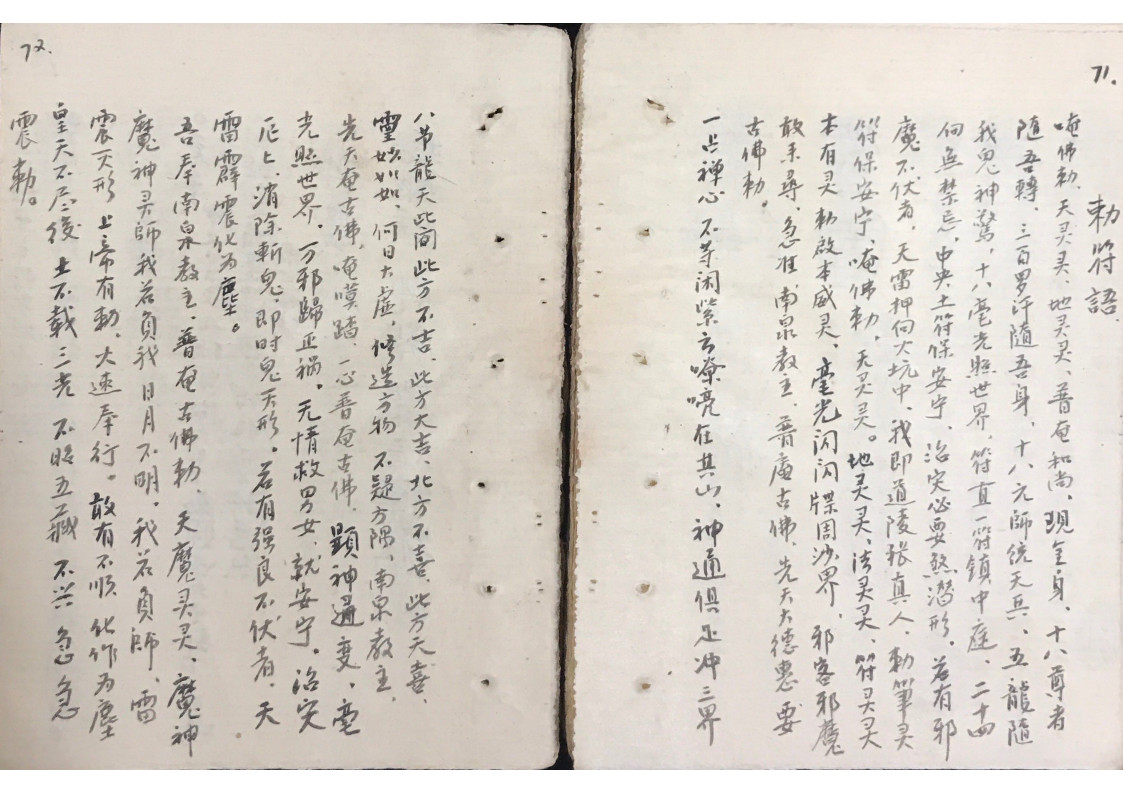 71.
勅符語
唵佛勅、天灵灵、地灵灵、普奄和尚、現金身、十八尊者
随吾轉、三百罗汗随吾身、十八元師统天兵、五龍隨
我鬼神驚、十八毫光照世界、符直一符鎮中庭、二十四
向無禁忌、中央土符保安宁、治突必要煞潜形、若有邪
魔不伏者、天雷押向大坑中、我即道陵張真人、勅筆灵
符保安宁、唵佛勅、天灵灵。地灵灵、法灵灵、符灵灵
本有灵勅啟本威灵、毫光闪闪牒周沙界、邪客邪魔
敢来尋、急准南泉教主普庵古佛、先天大德惠要
古佛勅。
一点禅心不等闲紫云嘹喨在其山、神通俱足冲三界
72.
八节龍天此间此方不吉、此方大吉、北方不喜、此方天喜、
靈妙如如、何日大虚、修造方物不疑方隅、南泉教主、
先天奄古佛、唵嘆踏、一心普奄古佛、顯神通变、毫
光照世界、万邪歸正祸、无情救男女、就安宁、治突
厄上、消除斬鬼、即时鬼灭形。若有强良不伏者、天
雷霹靂震化为塵。
吾奉南泉教主、普奄古佛勅、天魔灵灵、魔神
魔神灵師我若負我日月不明、我若負師、雷
震灭形上帝有勅、火速奉行。敢有不順化作为塵
皇天不尽後土不载三光不昭五藏不兴急急
震勅。